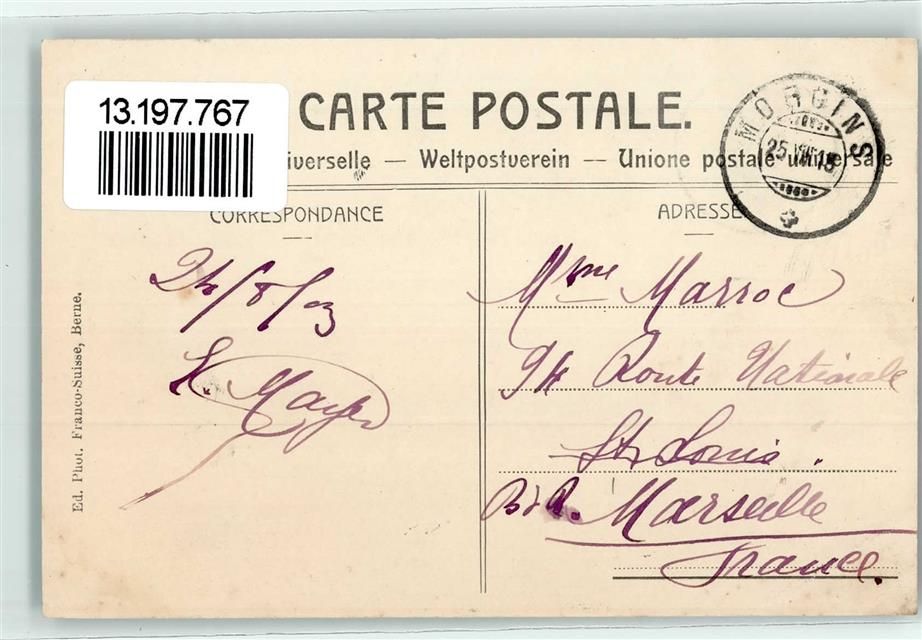 13.197.767
CARTE POSTALE.
iverselle — Weltpostverein — Unione postale universale
MORGINS
25 VIII
CORRESPONDANCE
ADRESSE
24/8/03
Mayer
Mme Marroc
94 Route Nationale
St Louis.
B d R. Marseille
France.
Ed. Phot. Franco-Suisse, Berne.